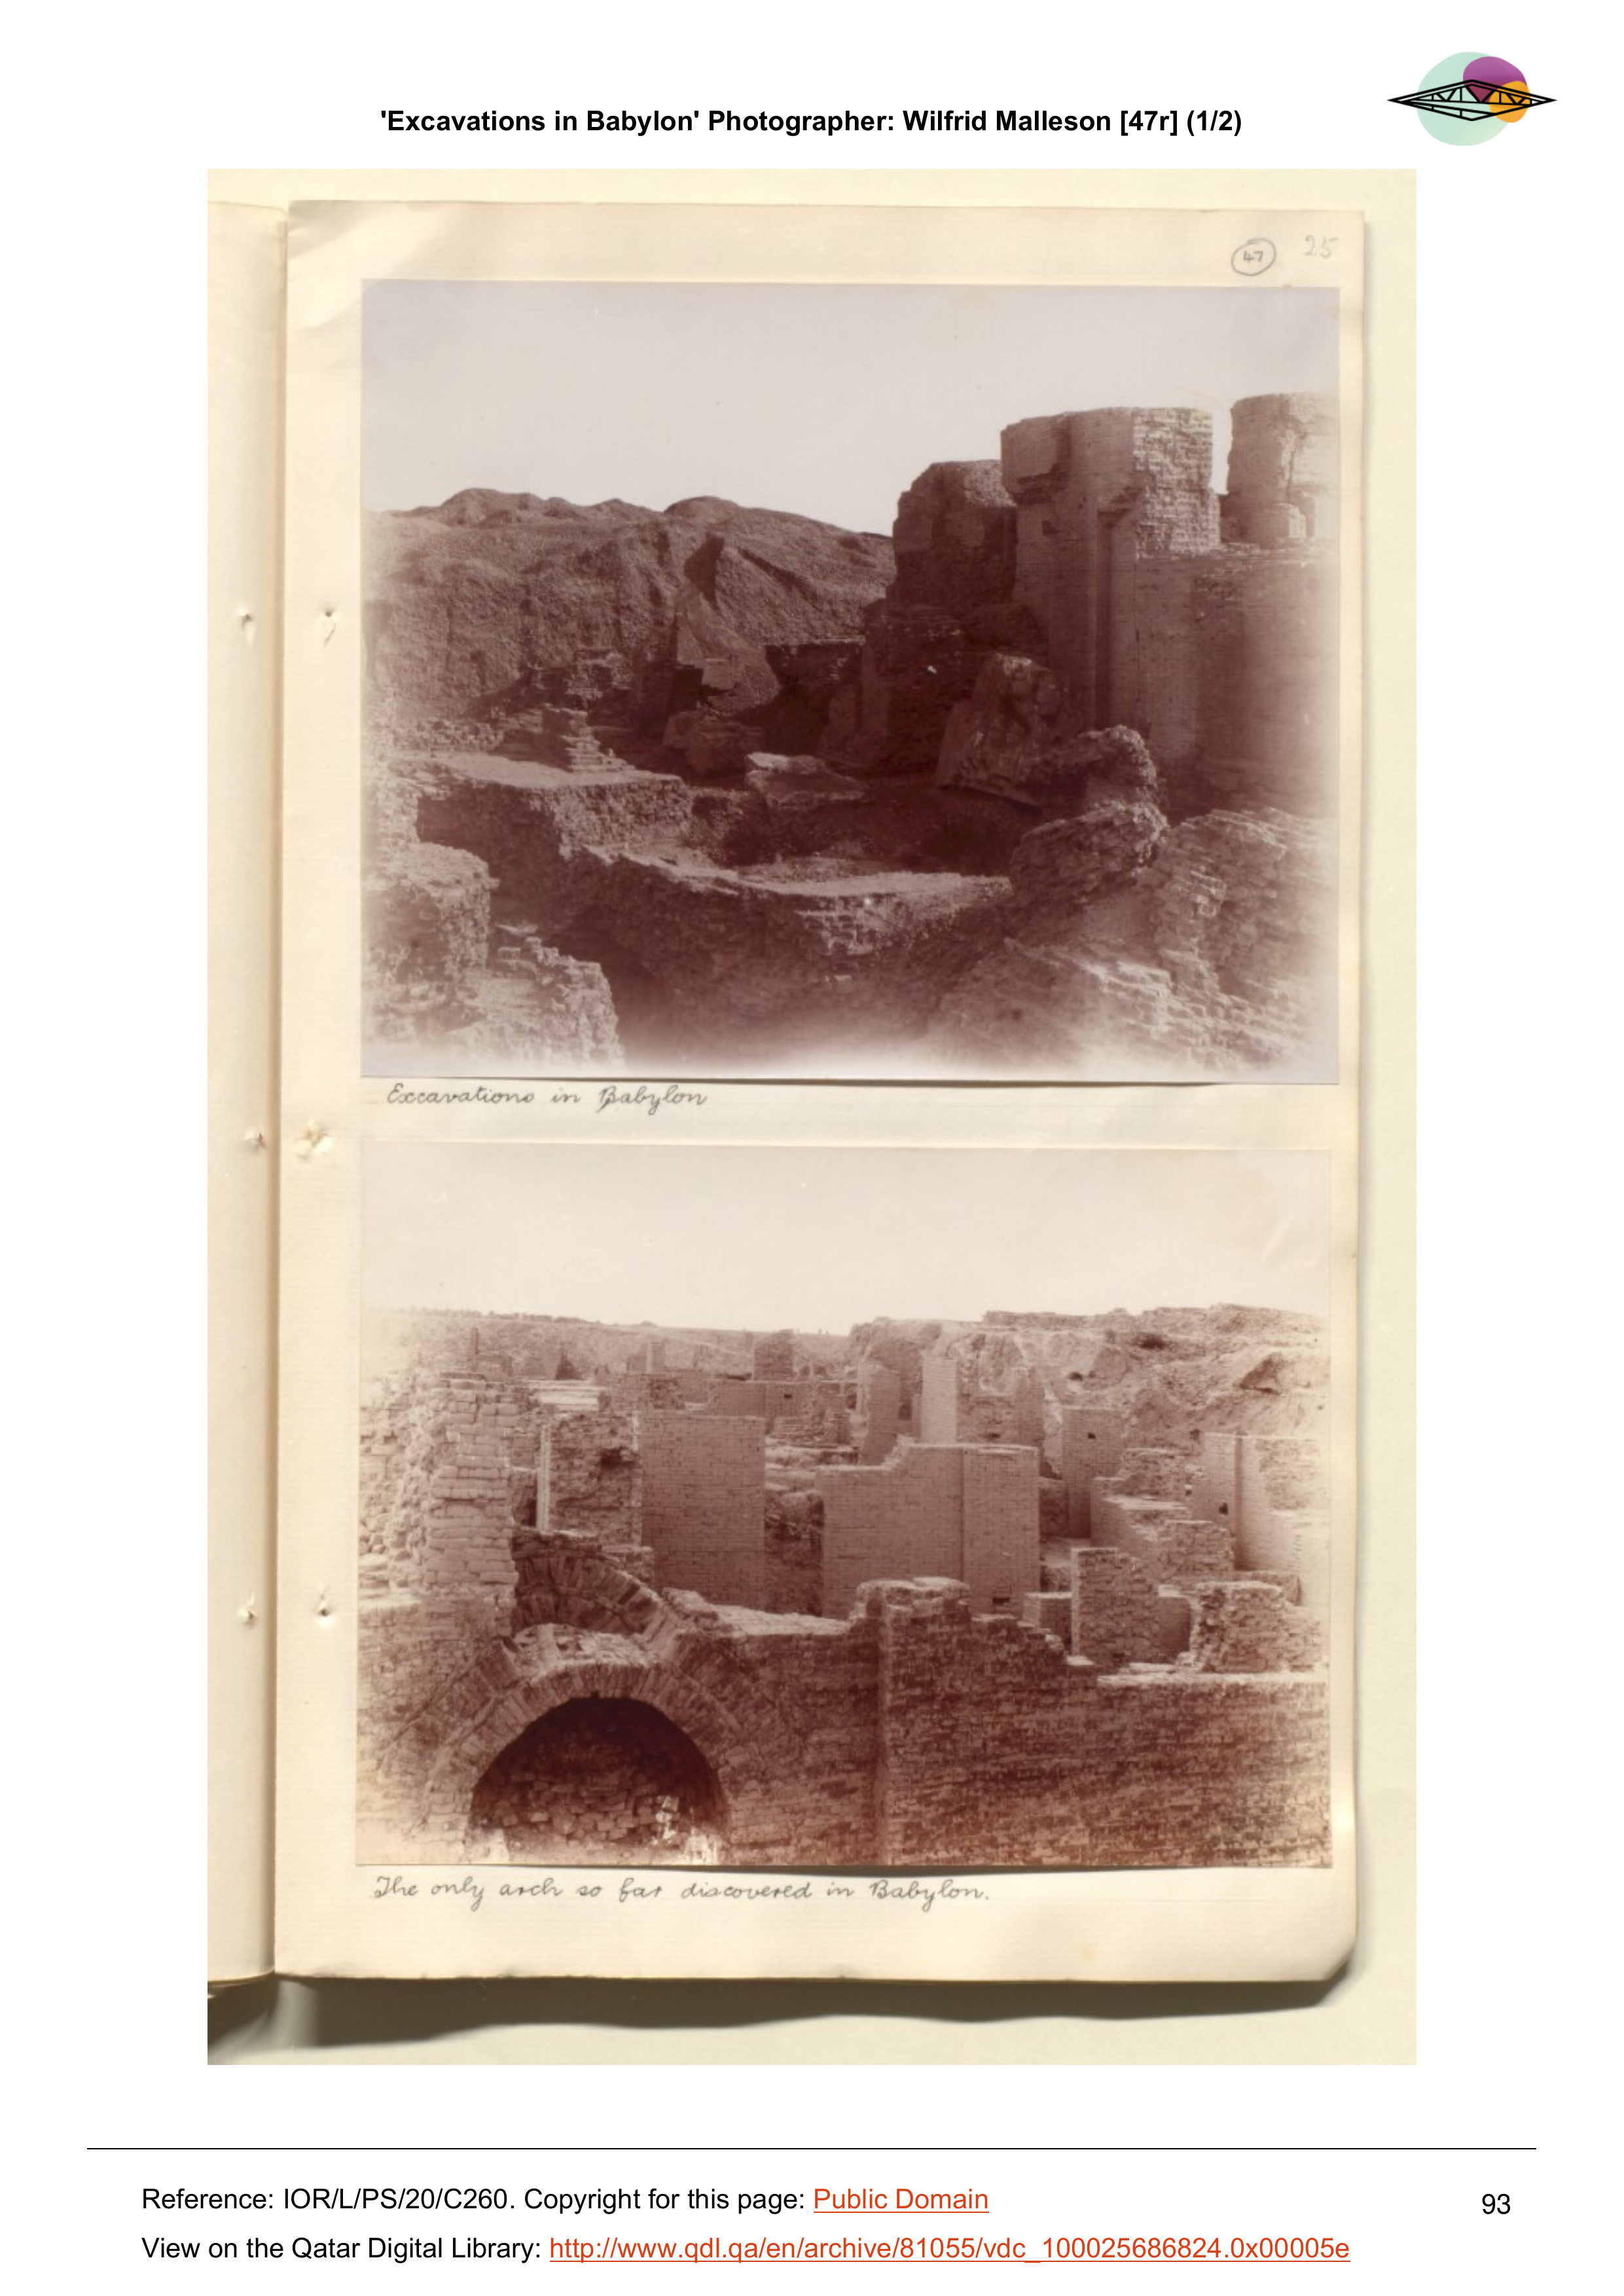 'Excavations in Babylon' Photographer: Wilfrid Malleson [47r] (1/2)
47 25
Excavations in Babylon
The only arch so far discovered in Babylon.
Reference: IOR/L/PS/20/C260. Copyright for this page: Public Domain
93
View on the Qatar Digital Library: http://www.qdl.qa/en/archive/81055/vdc_100025686824.0x00005e